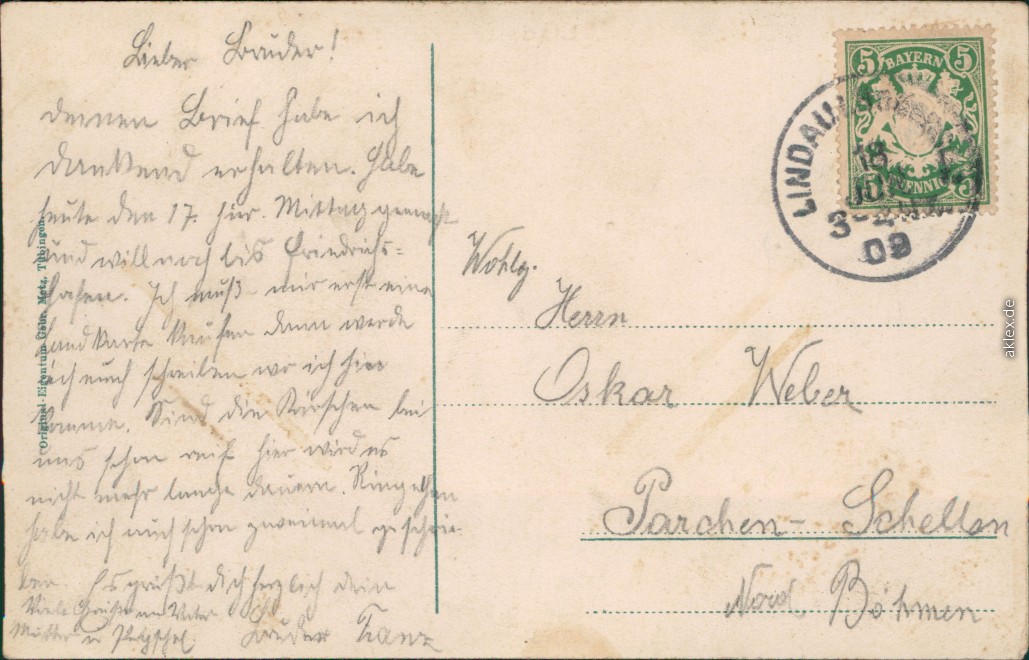 Lieber Bruder!
deinen Brief habe ich
dankend erhalten. Habe
heute den 17. hier Mittag gemacht
und will noch bis Friedrichs-
hafen. Ich muß mir erst eine
Landkarte kaufen dann werde
ich euch schreiben wo ich hin
komme. Sind die Kirschen bei
uns schon reif hier wird es
nicht mehr lange dauern.
habe ich auch schon zweimal geschrie-
ben. Es grüßt dich herzlich dein
Bruder Franz
Viele Grüße an Vater
Mutter u
Original-Eigentum Gebr. Metz, Tübingen.
5 BAYERN 5
PFENNIG
LINDAU
18
09
Wohlg.
Herrn
Oskar Weber
Parchen-Schelten
Nord Böhmen
aklex.de